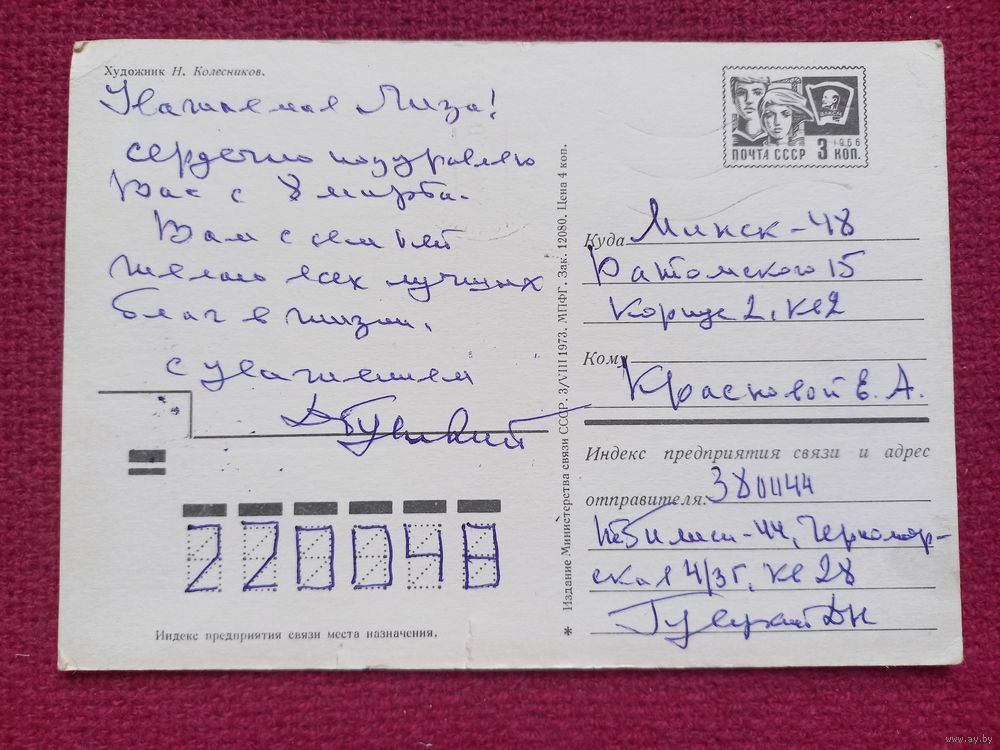 Художник Н. Колесников.
Уважаемая Лиза!
сердечно поздравляю
Вас с 8 марта.
Вам с семьей
желаю всех лучших
благ в жизни.
с уважением
220048
Индекс предприятия связи места назначения.
* Издание Министерства связи СССР. 3/VIII 1973. МПФГ. Зак. 12080. Цена 4 коп.
1966
ПОЧТА СССР 3 КОП.
Куда Минск-48
Ратомского 15
Корпус 2, кв 2
Кому
Красковой Е. А.
Индекс предприятия связи и адрес
отправителя: 380044
Тбилиси-44, Черномор-
ская 4/3г, кв 28